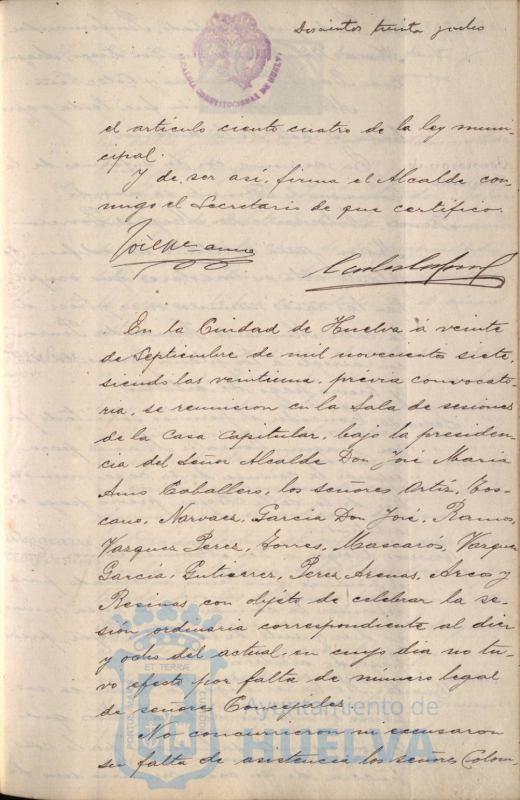 Doscientos treinta y ocho
ALCALDIA CONSTITUCIONAL DE HUELVA
el artículo ciento cuatro de la ley muni-
cipal.
Y de ser así, firma el Alcalde con-
migo el Secretario de que certifico.
En la Ciudad de Huelva á veinte
de Septiembre de mil novecientos siete,
siendo las veintiuna, previa convocato-
ria, se reunieron en la Sala de sesiones
de la Casa Capitular, bajo la presiden-
cia del Señor Alcalde Don José Maria
Amo Caballero, los señores Ortíz, Tos-
cano, Narvaez, García Don José, Ramos,
Vazquez Perez, Torres, Mascarós, Vazquez
García, Gutierrez, Perez Arenas, Arco y
Resinas, con objeto de celebrar la se-
sión ordinaria correspondiente al diez
y ocho del actual, en cuyo día no tu-
vo efecto por falta de número legal
de señores Concejales.
No concurrieron ni escusaron
su falta de asistencia los señores Colom-
PORTUS MARIS ET TERRÆ CUSTODIA
Ayuntamiento de
HUELVA